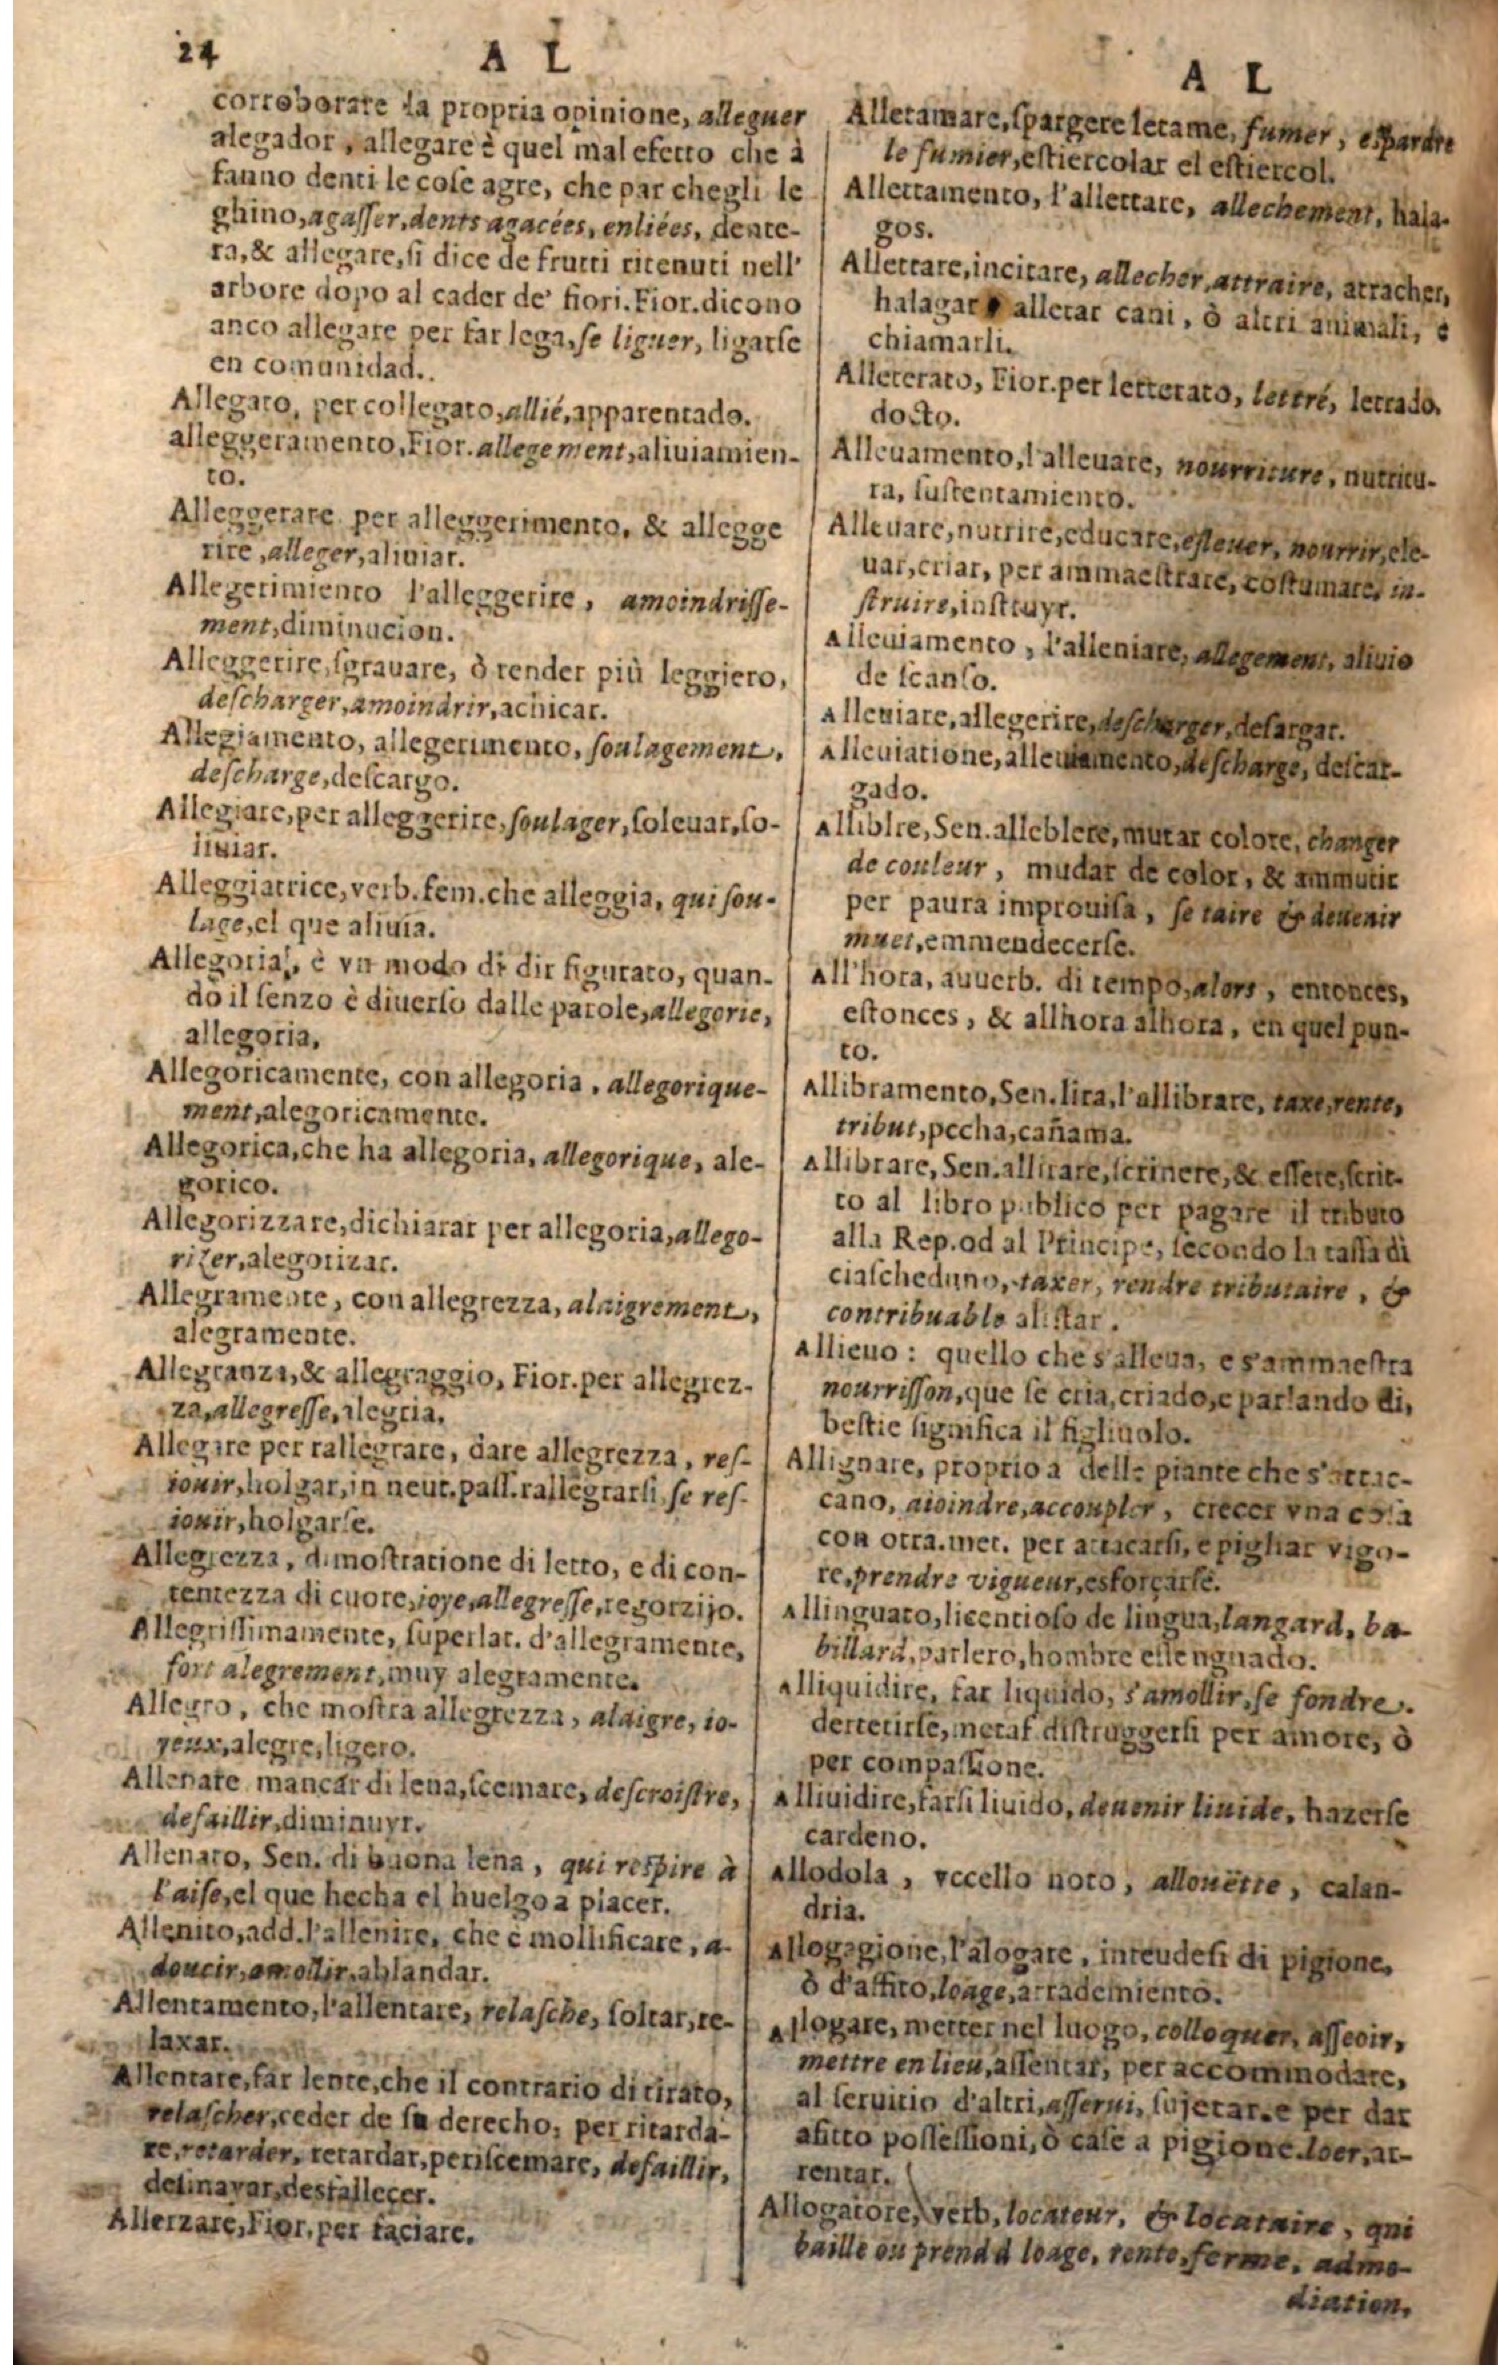 24
A L
corroborare la propria opinione, alleguer
alegador, allegare è quel mal efetto che à
fanno denti le cose agre, che par chegli le
ghino, agaſſer, dents agacées, enliées, dente-
ra, & allegare, ſi dice de frutti ritenuti nell'
arbore dopo al cader de' fiori. Fior. dicono
anco allegare per far lega, ſe liguer, ligarſe
en comunidad.
Allegato, per collegato, allié, apparentado.
alleggeramento, Fior. allegement, aliuiamien-
to.
Alleggerare per alleggerimento, & allegge
rire, alleger, aliuiar.
Allegerimiento l'alleggerire, amoindriſſe-
ment, diminucion.
Alleggerire, ſgrauare, ò render più leggiero,
deſcharger, amoindrir, achicar.
Allegiamento, allegerimento, ſoulagement,
deſcharge, deſcargo.
Allegiare, per alleggerire, ſoulager, ſoleuar, ſo-
liuiar.
Alleggiatrice, verb. fem. che alleggia, qui ſou-
lage, el que aliuia.
Allegoria, è vn modo di dir figurato, quan-
do il ſenzo è diuerſo dalle parole, allegorie,
allegoria,
Allegoricamente, con allegoria, allegorique-
ment, alegoricamente.
Allegorica, che ha allegoria, allegorique, ale-
gorico.
Allegorizzare, dichiarar per allegoria, allego-
rizer, alegorizar.
Allegramente, con allegrezza, alaigrement,
alegramente.
Allegranza, & allegraggio, Fior. per allegrez-
za, allegreſſe, alegria.
Allegare per rallegrare, dare allegrezza, reſ-
iouir, holgar, in neut. paſſ. rallegrarſi, ſe reſ-
iouïr, holgarſe.
Allegrezza, dimoſtratione di letto, e di con-
tentezza di cuore, ioye, allegreſſe, regorzijo.
Allegriſſimamente, ſuperlat. d'allegramente,
fort alegrement, muy alegramente.
Allegro, che moſtra allegrezza, alaigre, io-
yeux, alegre, ligero.
Allenare mancar di lena, ſcemare, deſcroiſtre,
defaillir, diminuyr.
Allenato, Sen. di buona lena, qui reſpire à
l'aiſe, el que hecha el huelgo a placer.
Allenito, add. l'allenire, che è mollificare, a-
doucir, amollir, ablandar.
Allentamento, l'allentare, relaſche, ſoltar, re-
laxar.
Allentare, far lente, che il contrario di tirato,
relaſcher, ceder de ſu derecho, per ritarda-
re, retarder, retardar, periſcemare, defaillir,
deſmayar, desfallecer.
Allerzare, Fior. per façiare.
A L
Alletamare, ſpargere letame, fumer, eſpardre
le fumier, eſtiercolar el eſtiercol.
Allettamento, l'allettare, allechement, hala-
gos.
Allettare, incitare, allecher, attraire, atracher,
halagar, alletar cani, ò altri animali, è
chiamarli.
Alleterato, Fior. per letterato, lettré, letrado,
docto.
Alleuamento, l'alleuare, nourriture, nutritu-
ra, ſuſtentamiento.
Alleuare, nutrire, educare, eſleuer, nourrir, ele-
uar, criar, per ammaeſtrare, coſtumare, in-
ſtruire, inſtruyr.
Alleuiamento, l'alleniare, allegement, aliuio
de ſcanſo.
Alleuiare, allegerire, deſcharger, deſargar.
Alleuiatione, alleuiamento, deſcharge, deſcar-
gado.
Alliblre, Sen. alleblere, mutar colore, changer
de couleur, mudar de color, & ammutir
per paura improuiſa, ſe taire & deuenir
muet, emmendecerſe.
All'hora, auuerb. di tempo, alors, entonces,
eſtonces, & allhora alhora, en quel pun-
to.
Allibramento, Sen. lira, l'allibrare, taxe, rente,
tribut, pecha, cañama.
Allibrare, Sen. allirare, ſcriuere, & eſſere, ſcrit-
to al libro publico per pagare il tributo
alla Rep. od al Principe, ſecondo la taſſa di
ciaſcheduno, taxer, rendre tributaire, &
contribuable aliſtar.
Allieuo: quello che s'alleua, e s'ammaeſtra
nourriſſon, que ſe cria, criado, e parlando di,
beſtie ſignifica il figliuolo.
Allignare, proprio a delle piante che s'attac-
cano, aioindre, accoupler, crecer vna coſa
con otra. met. per attacarſi, e pigliar vigo-
re, prendre vigueur, esforçarſe.
Allinguato, licentioſo de lingua, langard, ba-
billard, parlero, hombre eſlenguado.
Alliquidire, far liquido, s'amollir, ſe fondre.
derretirſe, metaf. diſtruggerſi per amore, ò
per compaſſione.
Alliuidire, farſi liuido, deuenir liuide, hazerſe
cardeno.
Allodola, vccello noto, allouëtte, calan-
dria.
Allogagione, l'alogare, intendeſi di pigione,
ò d'affito, loage, arrademiento.
Allogare, metter nel luogo, colloquer, aſſeoir,
mettre en lieu, aſſentar, per accommodare,
al ſeruitio d'altri, aſſerui, ſujetar. e per dar
afitto poſſeſſioni, ò caſe a pigione. loer, ar-
rentar.
Allogatore, verb, locateur, & locataire, qui
baille ou prend à loage, rente, ferme, admo-
diation,